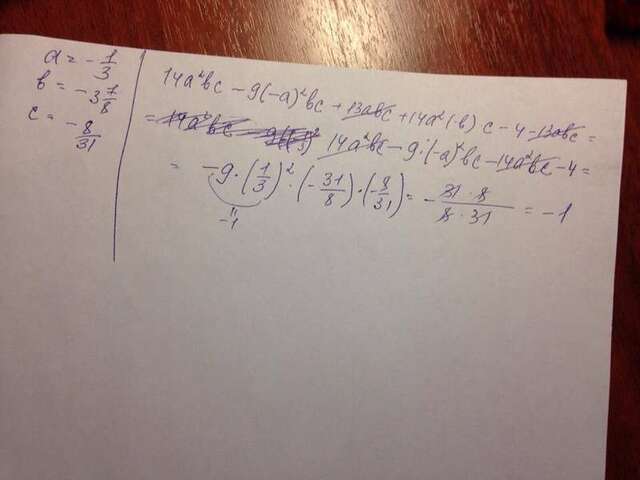 a = -1/3
b = -3 7/8
c = -8/31
14a²bc - 9(-a)²bc + 13abc + 14a²(-b)c - 4 - 13abc =
= 14a²bc - 9·(-a)²bc - 14a²bc - 4 =
= -9·(1/3)²·(-31/8)·(-8/31) = -31·8/8·31 = -1
"
-1